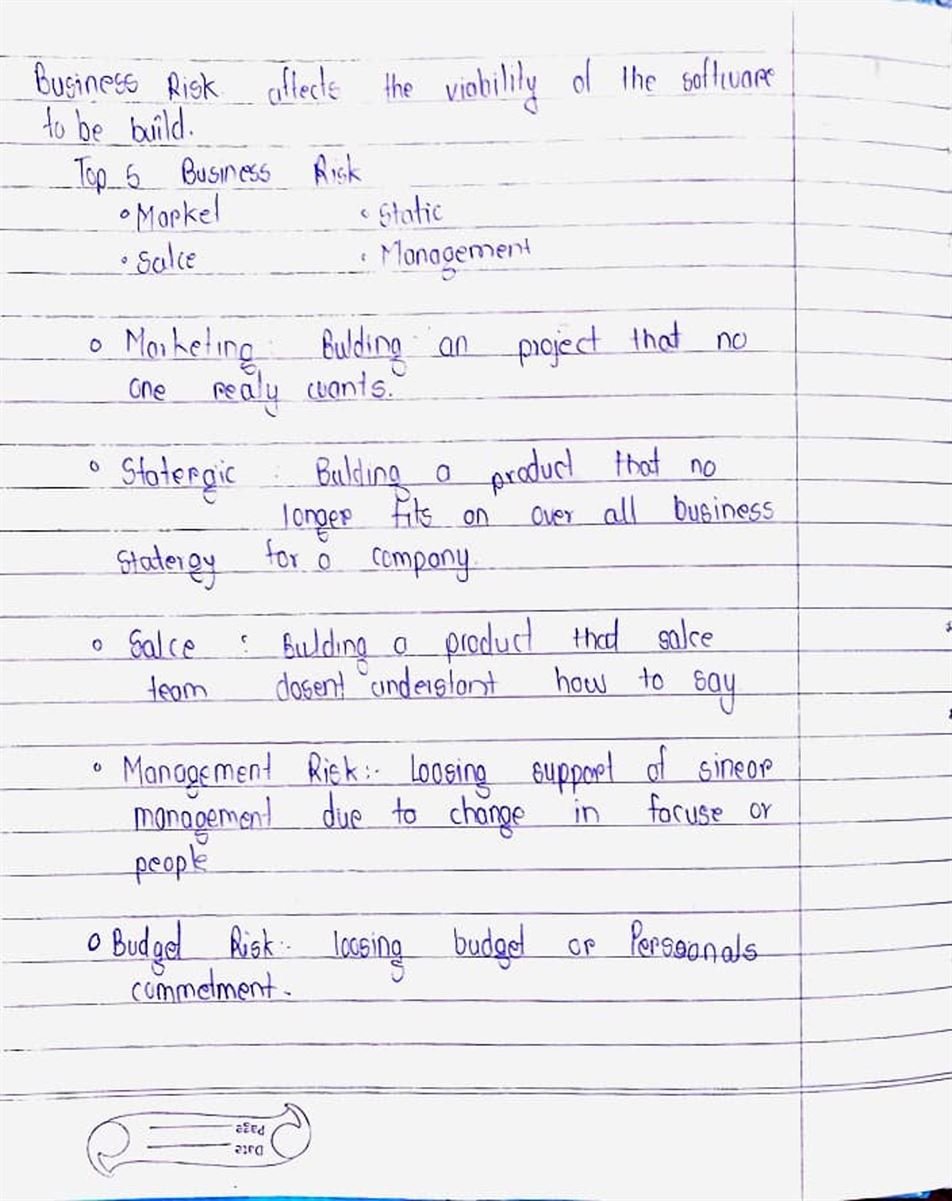 Business Risk affects the viability of the software
to be build.
Top 5 Business Risk
• Market • Static
• Salce • Management
o Marketing : Bulding an project that no
one realy wants.
o Statergic : Bulding a product that no
longer fits on over all business
Statergy for a company.
o Salce : Bulding a product that salce
team dosent understant how to say
o Management Risk:- Loosing support of sineor
management due to change in focuse or
people
o Budget Risk:- loosing budget or Personals
commetment.
Page
Date